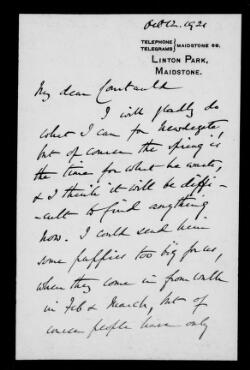 Oct 12. 1921
TELEPHONE
TELEGRAMS } MAIDSTONE 69.
LINTON PARK,
MAIDSTONE.
My dear Courtauld
I will gladly do
what I can for Newdegate,
but of course the spring is
the time for what he wants,
& I think it will be diffi-
-cult to find anything
now. I could send him
some puppies too big for us,
when they come in from walk
in Feb & March, but of
course people have only